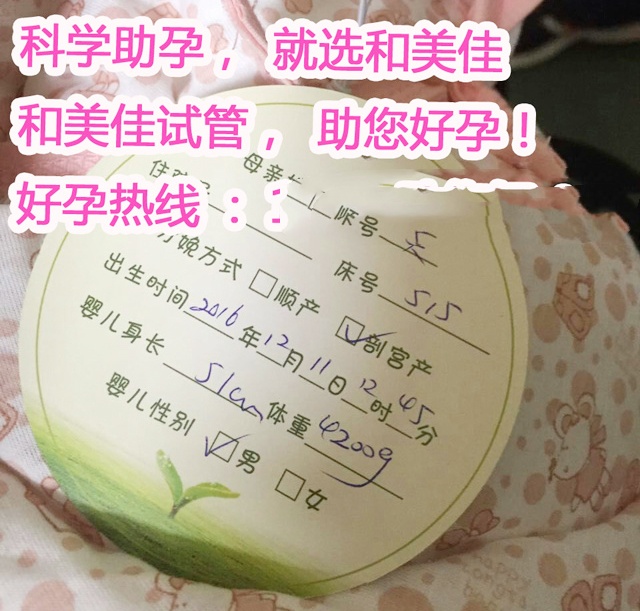 科学助孕， 就选和美佳
和美佳试管， 助您好孕！
好孕热线 ：
母亲
住
帐号
床号 515
娩方式 □顺产 ☑剖宫产
出生时间 2016 年 12 月 11 日 12 时 45 分
婴儿身长 51cm 体重 4200g
婴儿性别 ☑男 □女